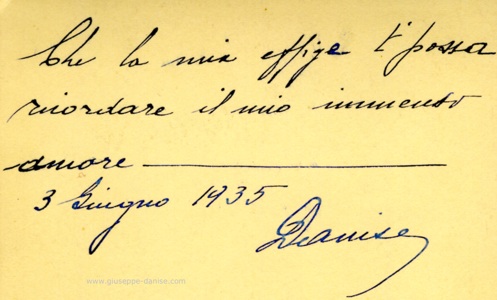 Che la mia effige t'possa
ricordare il mio immenso
amore
3 Giugno 1935
Danise
www.giuseppe-danise.com